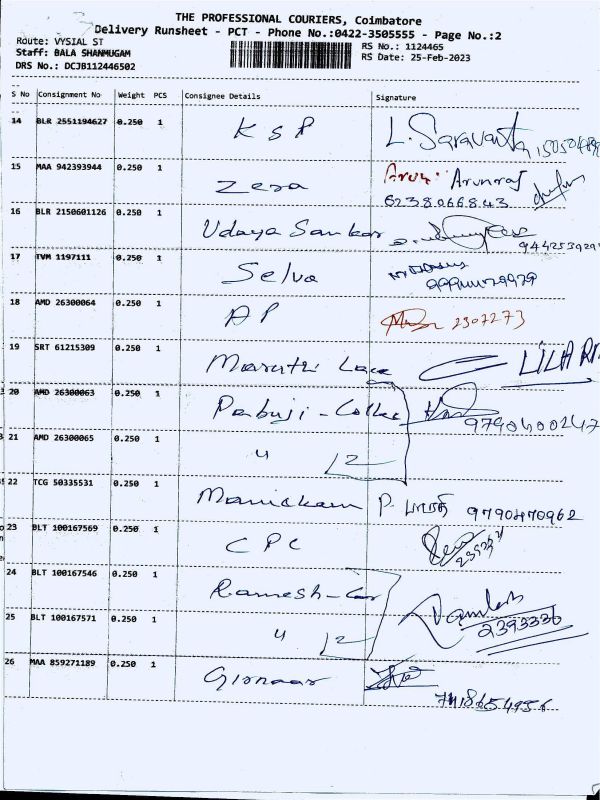 THE PROFESSIONAL COURIERS, Coimbatore
Delivery Runsheet - PCT - Phone No.:0422-3505555 - Page No.:2
Route: VYSIAL ST
RS No.: 1124465
Staff: BALA SHANMUGAM
RS Date: 25-Feb-2023
DRS No.: DCJB112446502
S No Consignment No Weight PCS Consignee Details Signature
14 BLR 2551194627 0.250 1 KSP L. Saravanta
15 MAA 942393944 0.250 1 Zera Arun Arunraj
6238066843
16 BLR 2150601126 0.250 1 Udaya Sankar
17 TVM 1197111 0.250 1 Selva
18 AMD 26300064 0.250 1 AP 2307273
19 SRT 61215309 0.250 1 Maruthi Lace
20 AMD 26300063 0.250 1 Pabuji -
21 AMD 26300065 0.250 1 " 12
22 TCG 50335531 0.250 1 Manickam P. பாரதி 9790470962
23 BLT 100167569 0.250 1 CPC
24 BLT 100167546 0.250 1 Ramesh -
25 BLT 100167571 0.250 1 " 12 2393330
26 MAA 859271189 0.250 1 Girnaar